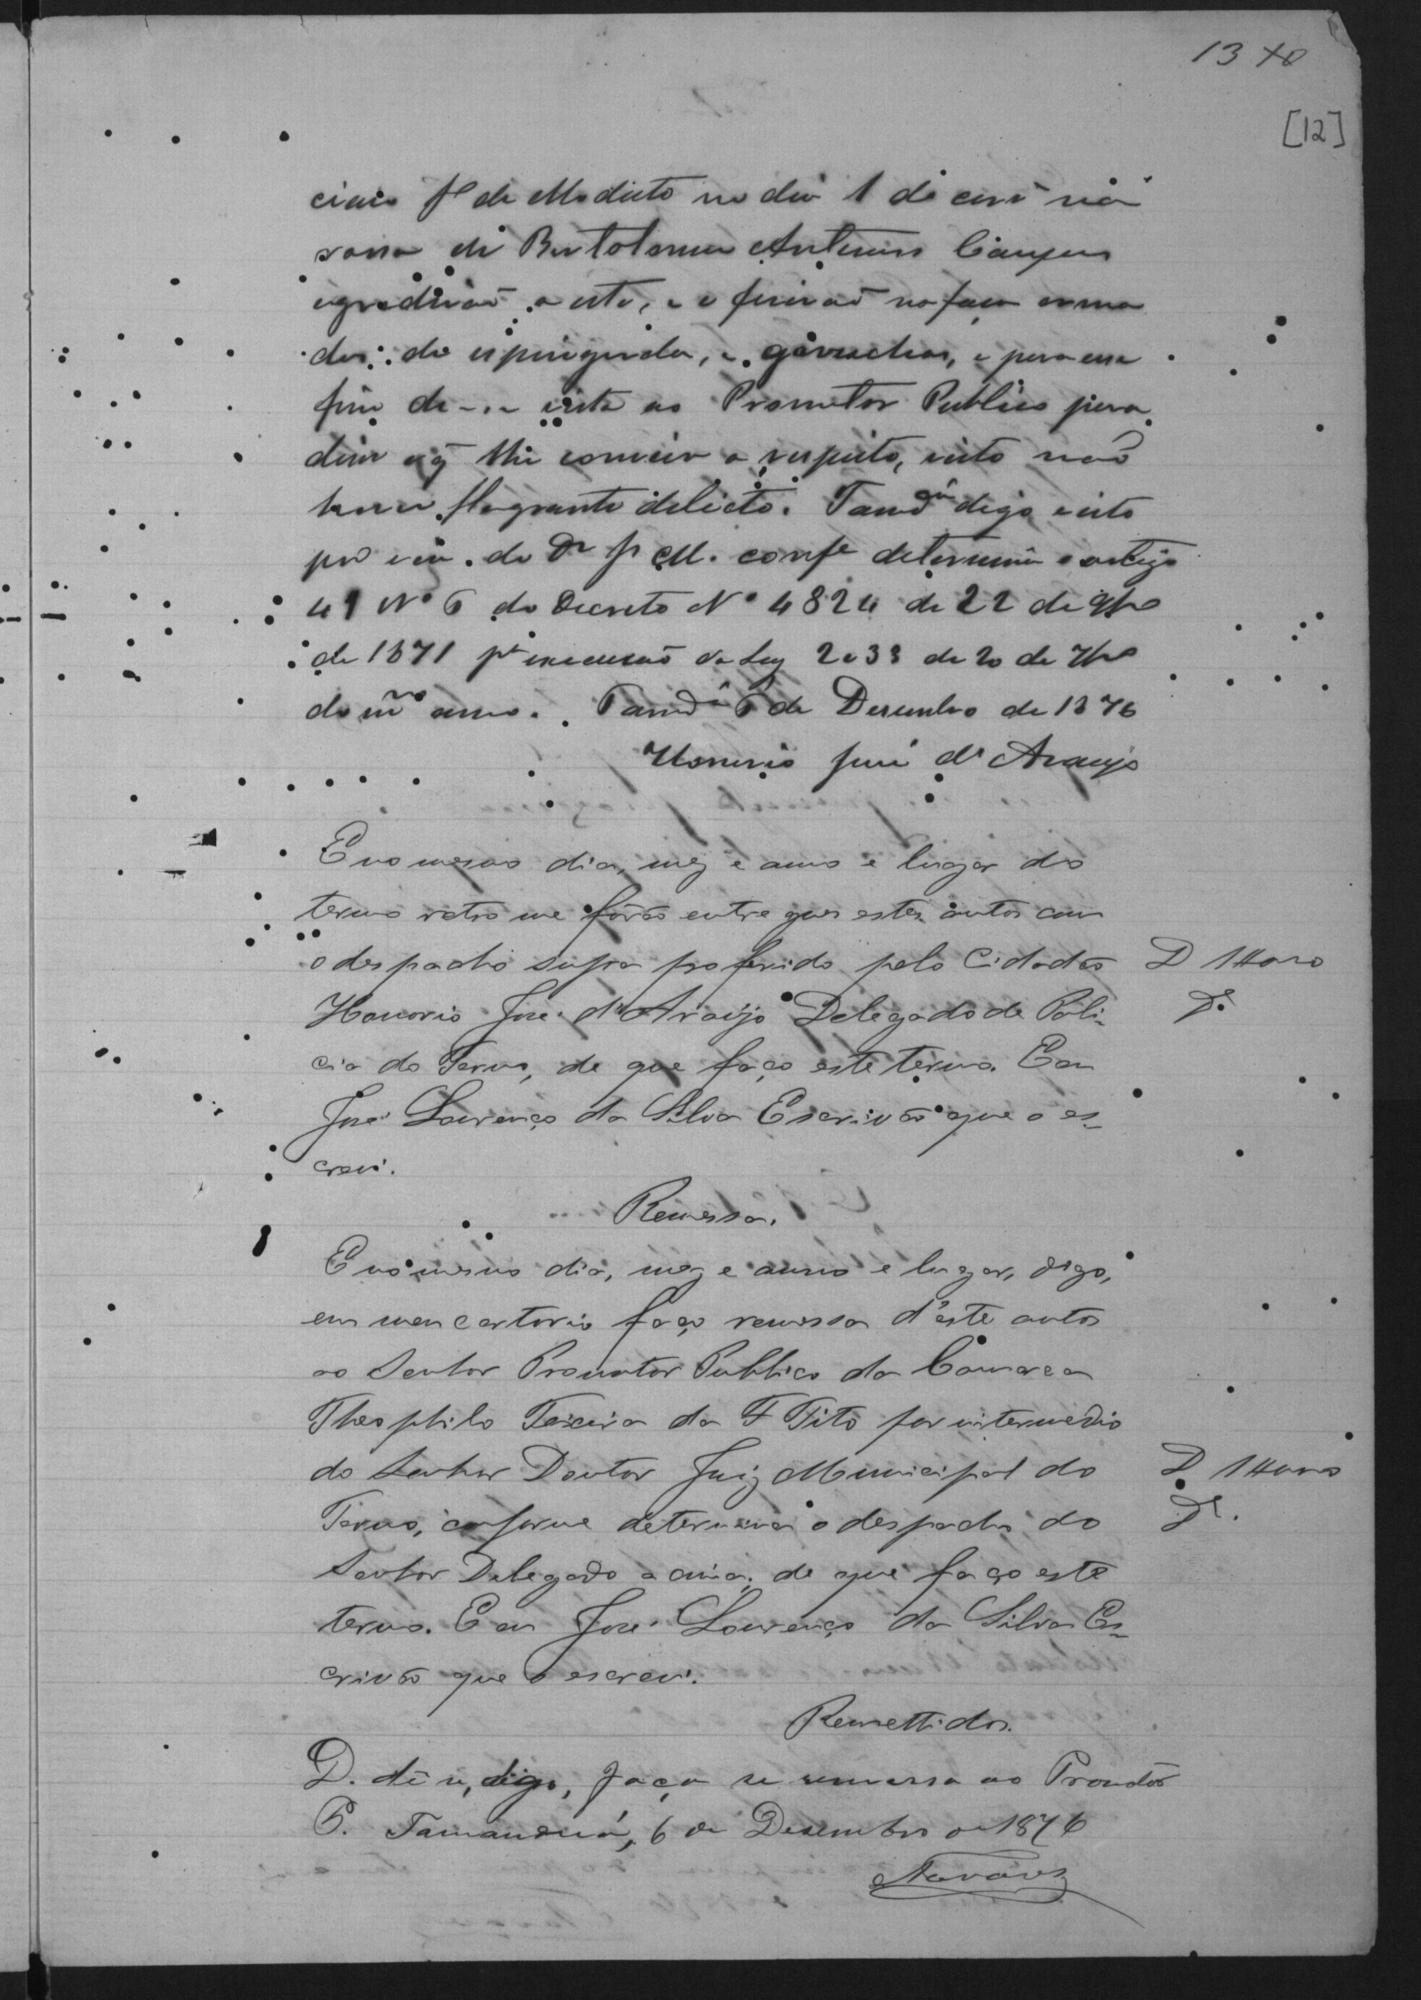 13
[12]
de Modesto no dia 1 do
de Bertolomeu Antunes Campos
agredirão a este, e o ferirão na face arma
dos de espingarda, e garruchas, e para esse
fim dê-se vista ao Promotor Publico para
dizer o q̃ lhe convier a respeito, visto não
haver flagrante delicto. Tamd.ᵃ digo visto
do Dr J M. conf.e determina o artigo
41 Nº 6 do Decreto Nº 4824 de 22 de 9bro
de 1871 pª execusão da Ley 2033 de 20 de 7bro
do m.mo anno. Tamd.ᵃ 6 de Desembro de 1876
Honorio José d'Araujo
E no mesmo dia, mez e anno e lugar do
termo retro me forão entregues estes autos com
o despacho supra proferido pelo Cidadão
D Honorio
Honorio José d'Araujo Delegado de Poli-
cia do Termo, de que faço este termo. Eu
José Lourenço da Silva Escrivão que o es-
crevi.
Remessa.
E no mesmo dia, mez e anno e lugar, digo,
em meu cartorio faço remessa d'este autos
ao Senhor Promotor Publico da Comarca
Theophilo Teixeira da F Tito por intermedio
do Senhor Doutor Juiz Municipal do
Termo, conforme determina o despacho do
Senhor Delegado acima; de que faço este
termo. Eu José Lourenço da Silva Es-
crivão que o escrevi.
Remettidos.
D. dê se, digo, faça se remessa ao Promotor
P. Tamanduá, 6 de Desembro de 1876
Navarro